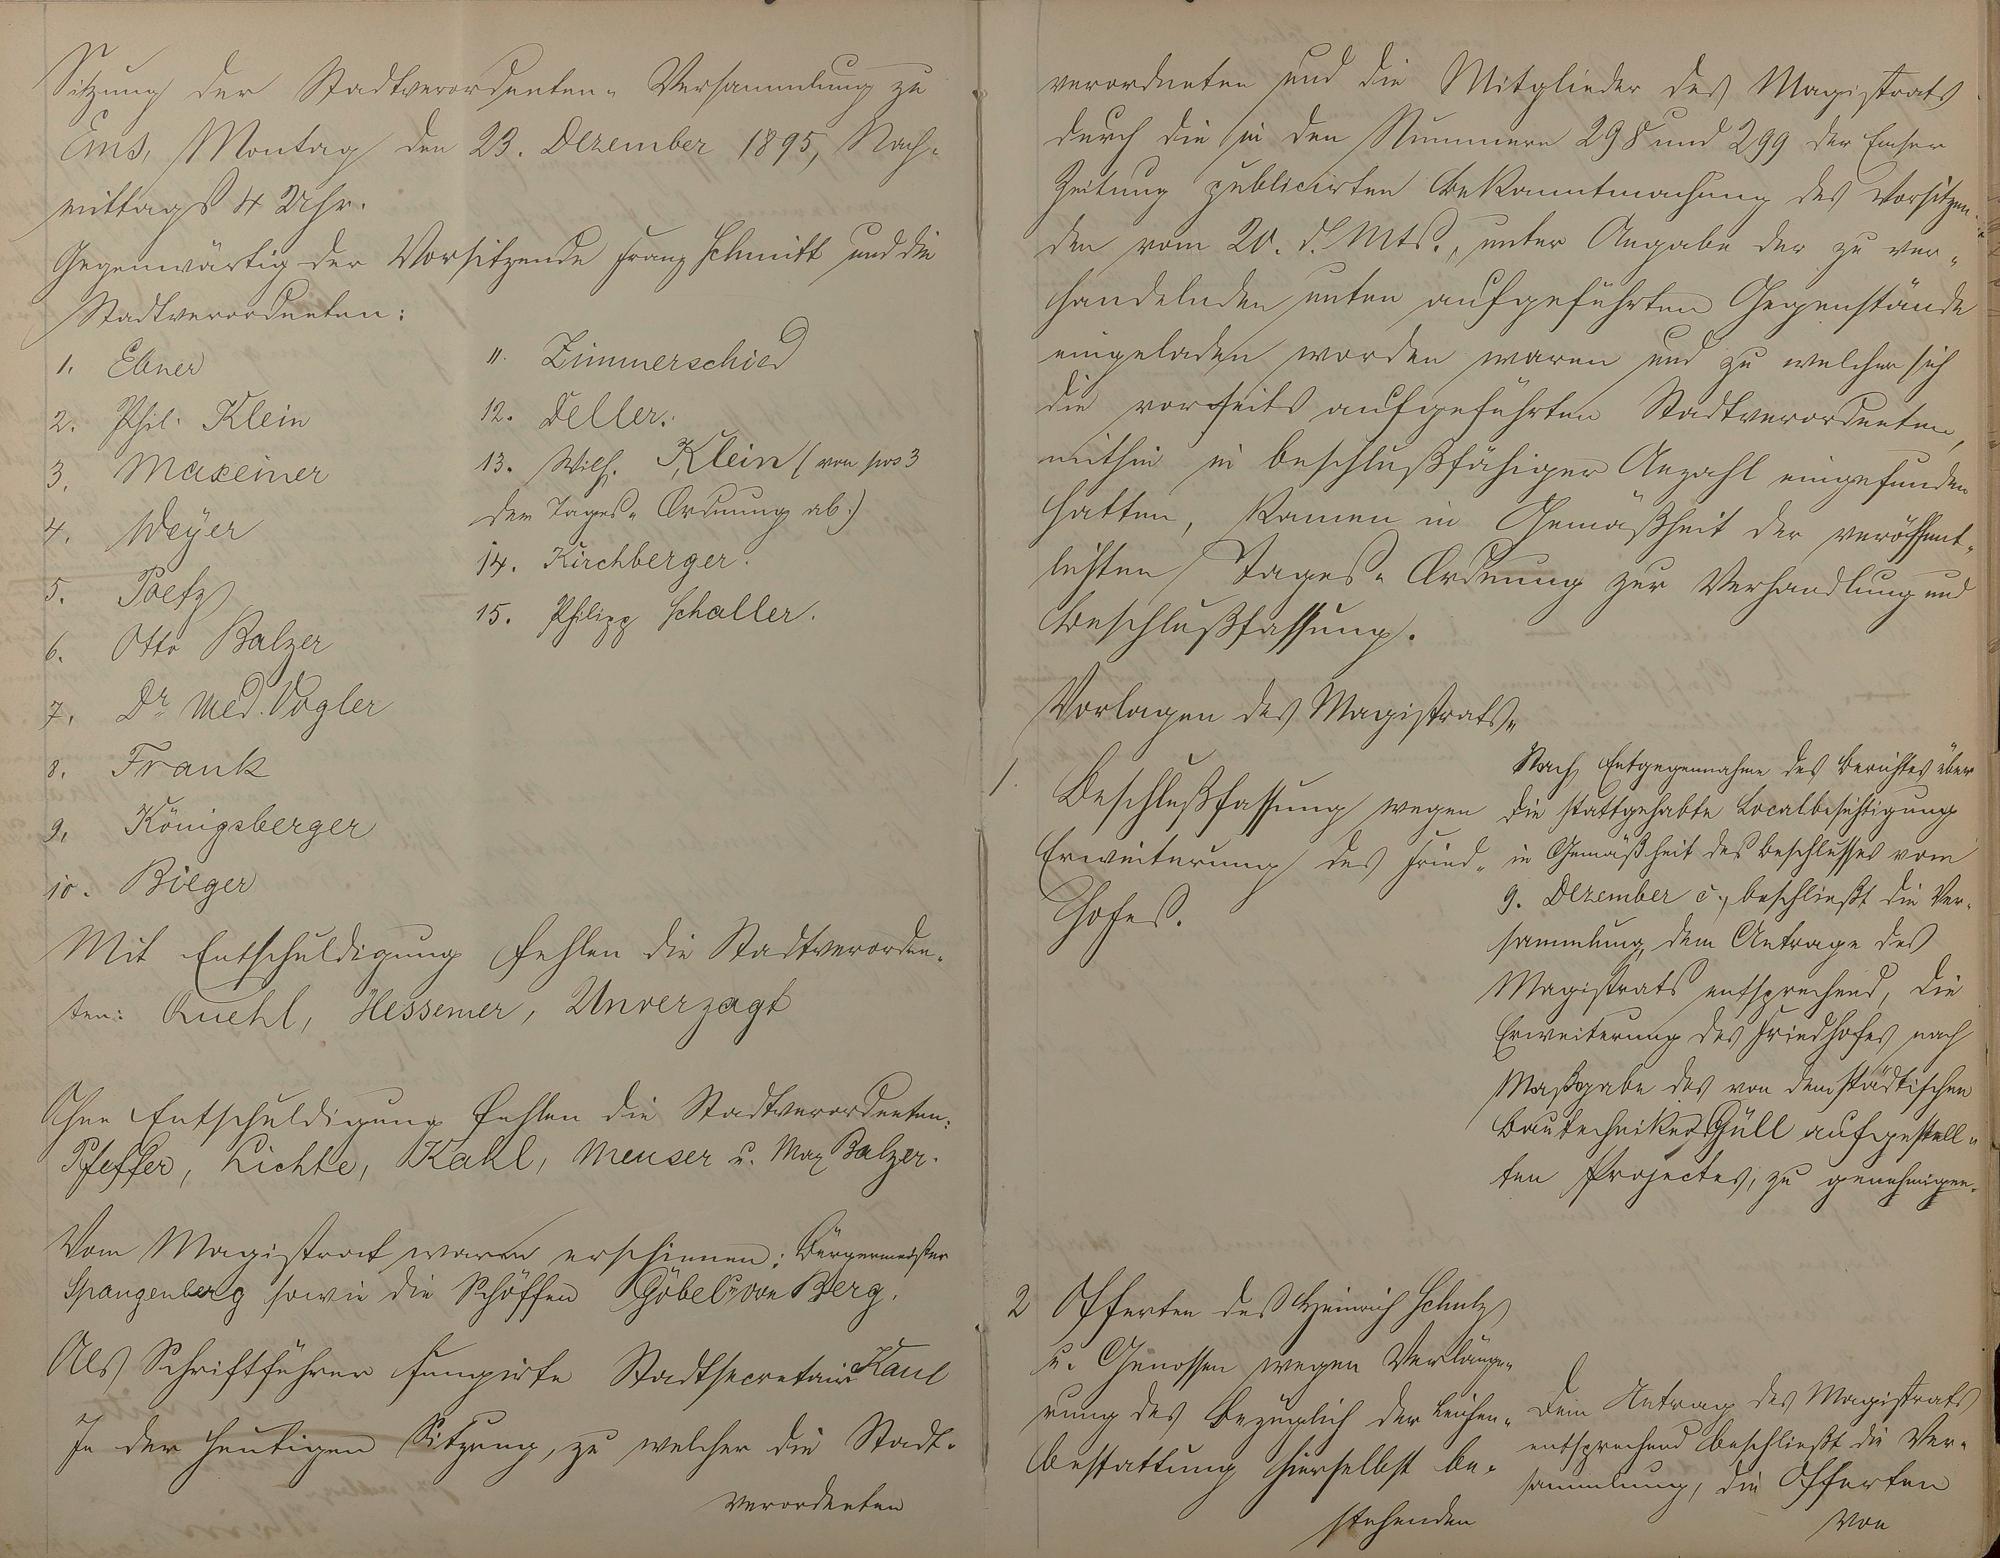 Sitzung der Stadtverordneten-Versammlung zu
Ems, Montag den 23. Dezember 1895, Nach-
mittags 4 Uhr.
Gegenwärtig der Vorsitzende Franz Schmitt und die
Stadtverordneten:
1. Ebner
2. Phil. Klein
3. Maxeiner
4. Weyer
5. Poetz
6. Otto Balzer
7. Dr med. Vogler
8. Frank
9. Königsberger
10. Bieger
11. Zimmerschied
12. Deller.
13. Wilh. Klein (von pos 3
der Tages-Ordnung ab.)
14. Kirchberger.
15. Philipp Schaller.
Mit Entschuldigung fehlen die Stadtverordne-
ten: Ruehl, Hessemer, Unverzagt
Ohne Entschuldigung fehlen die Stadtverordneten:
Pfeffer, Lichte, Kahl, Meuser u. Max Balzer.
Vom Magistrat waren erschienen: Bürgermeister
Spangenberg sowie die Schöffen Göbel u. von Berg.
Als Schriftführer fungirte Stadtsecretair Kaul
In der heutigen Sitzung, zu welcher die Stadt-
verordneten
verordneten und die Mitglieder des Magistrats
durch die in den Nummern 298 und 299 der Emser
Zeitung publicirten Bekanntmachung des Vorsitzen-
den vom 20. d. Mts., unter Angabe der zu ver-
handelnden unten aufgeführten Gegenstände
eingeladen worden waren und zu welcher sich
die vorseits aufgeführten Stadtverordneten,
mithin in beschlußfähiger Anzahl eingefunden
hatten, kamen in Gemäßheit der veröffent-
lichten Tages-Ordnung zur Verhandlung und
Beschlußfassung.
Vorlagen des Magistrats.
1. Beschlußfassung wegen
Erweiterung des Fried-
hofes.
Nach Entgegennahme des Berichtes über
die stattgehabte Localbesichtigung
in Gemäßheit des Beschlusses vom
9. Dezember c., beschließt die Ver-
sammlung, dem Antrage des
Magistrats entsprechend, die
Erweiterung des Friedhofes nach
Maßgabe des von dem städtischen
Bautechniker Güll aufgestell-
ten Projectes, zu genehmigen.
2 Offerten des Heinrich Schulz
u. Genossen wegen Verlänge-
rung des bezüglich der Leichen-
bestattung hierselbst be-
stehenden
Dem Antrag des Magistrats
entsprechend beschließt die Ver-
sammlung, die Offerten
von